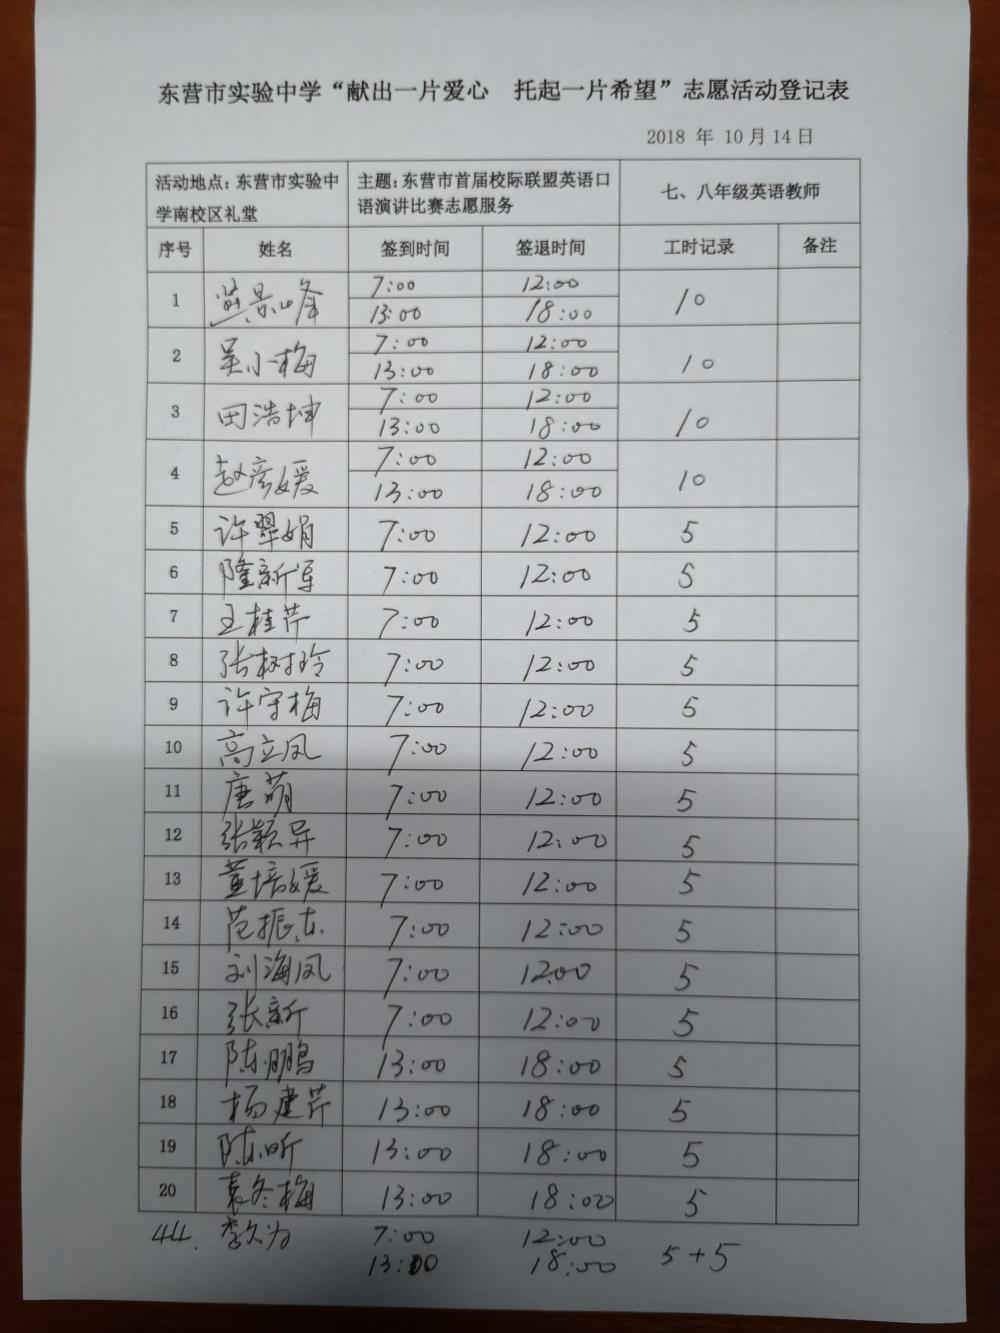 东营市实验中学“献出一片爱心 托起一片希望”志愿活动登记表
2018 年 10月14日
活动地点：东营市实验中学南校区礼堂 主题：东营市首届校际联盟英语口语演讲比赛志愿服务 七、八年级英语教师
序号 姓名 签到时间 签退时间 工时记录 备注
1 景峰 7:00 12:00 10
13:00 18:00
2 吴小梅 7:00 12:00 10
13:00 18:00
3 田浩坤 7:00 12:00 10
13:00 18:00
4 赵彦媛 7:00 12:00 10
13:00 18:00
5 许翠娟 7:00 12:00 5
6 隆新军 7:00 12:00 5
7 王桂芹 7:00 12:00 5
8 张树玲 7:00 12:00 5
9 许守梅 7:00 12:00 5
10 高立凤 7:00 12:00 5
11 唐萌 7:00 12:00 5
12 张颖异 7:00 12:00 5
13 董培媛 7:00 12:00 5
14 范振东 7:00 12:00 5
15 刘海凤 7:00 12:00 5
16 张新 7:00 12:00 5
17 陈鹏 13:00 18:00 5
18 杨建芹 13:00 18:00 5
19 陈昕 13:00 18:00 5
20 袁冬梅 13:00 18:00 5
44. 李久为 7:00 12:00
13:00 18:00 5+5